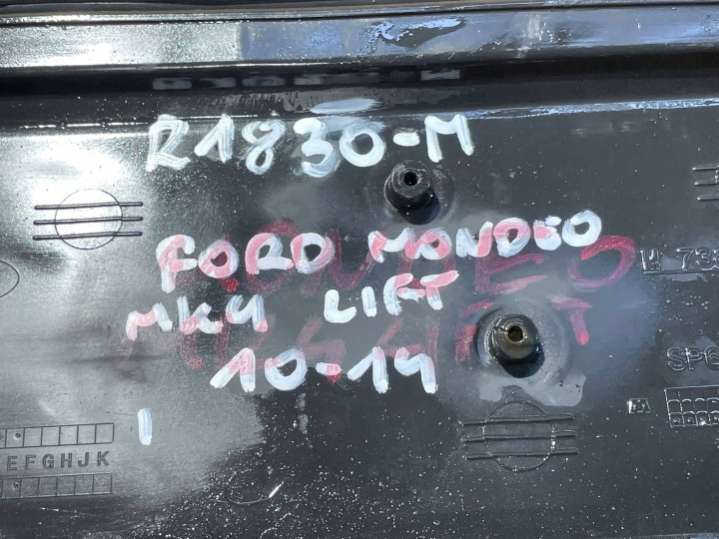 R1830-M
FORD MONDEO
MK4 LIFT
10-14
EFGHJK